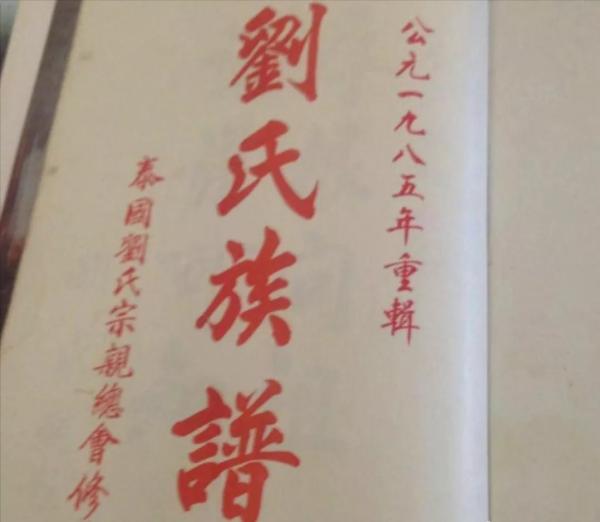 公元一九八五年重輯
劉氏族譜
泰國劉氏宗親總會修